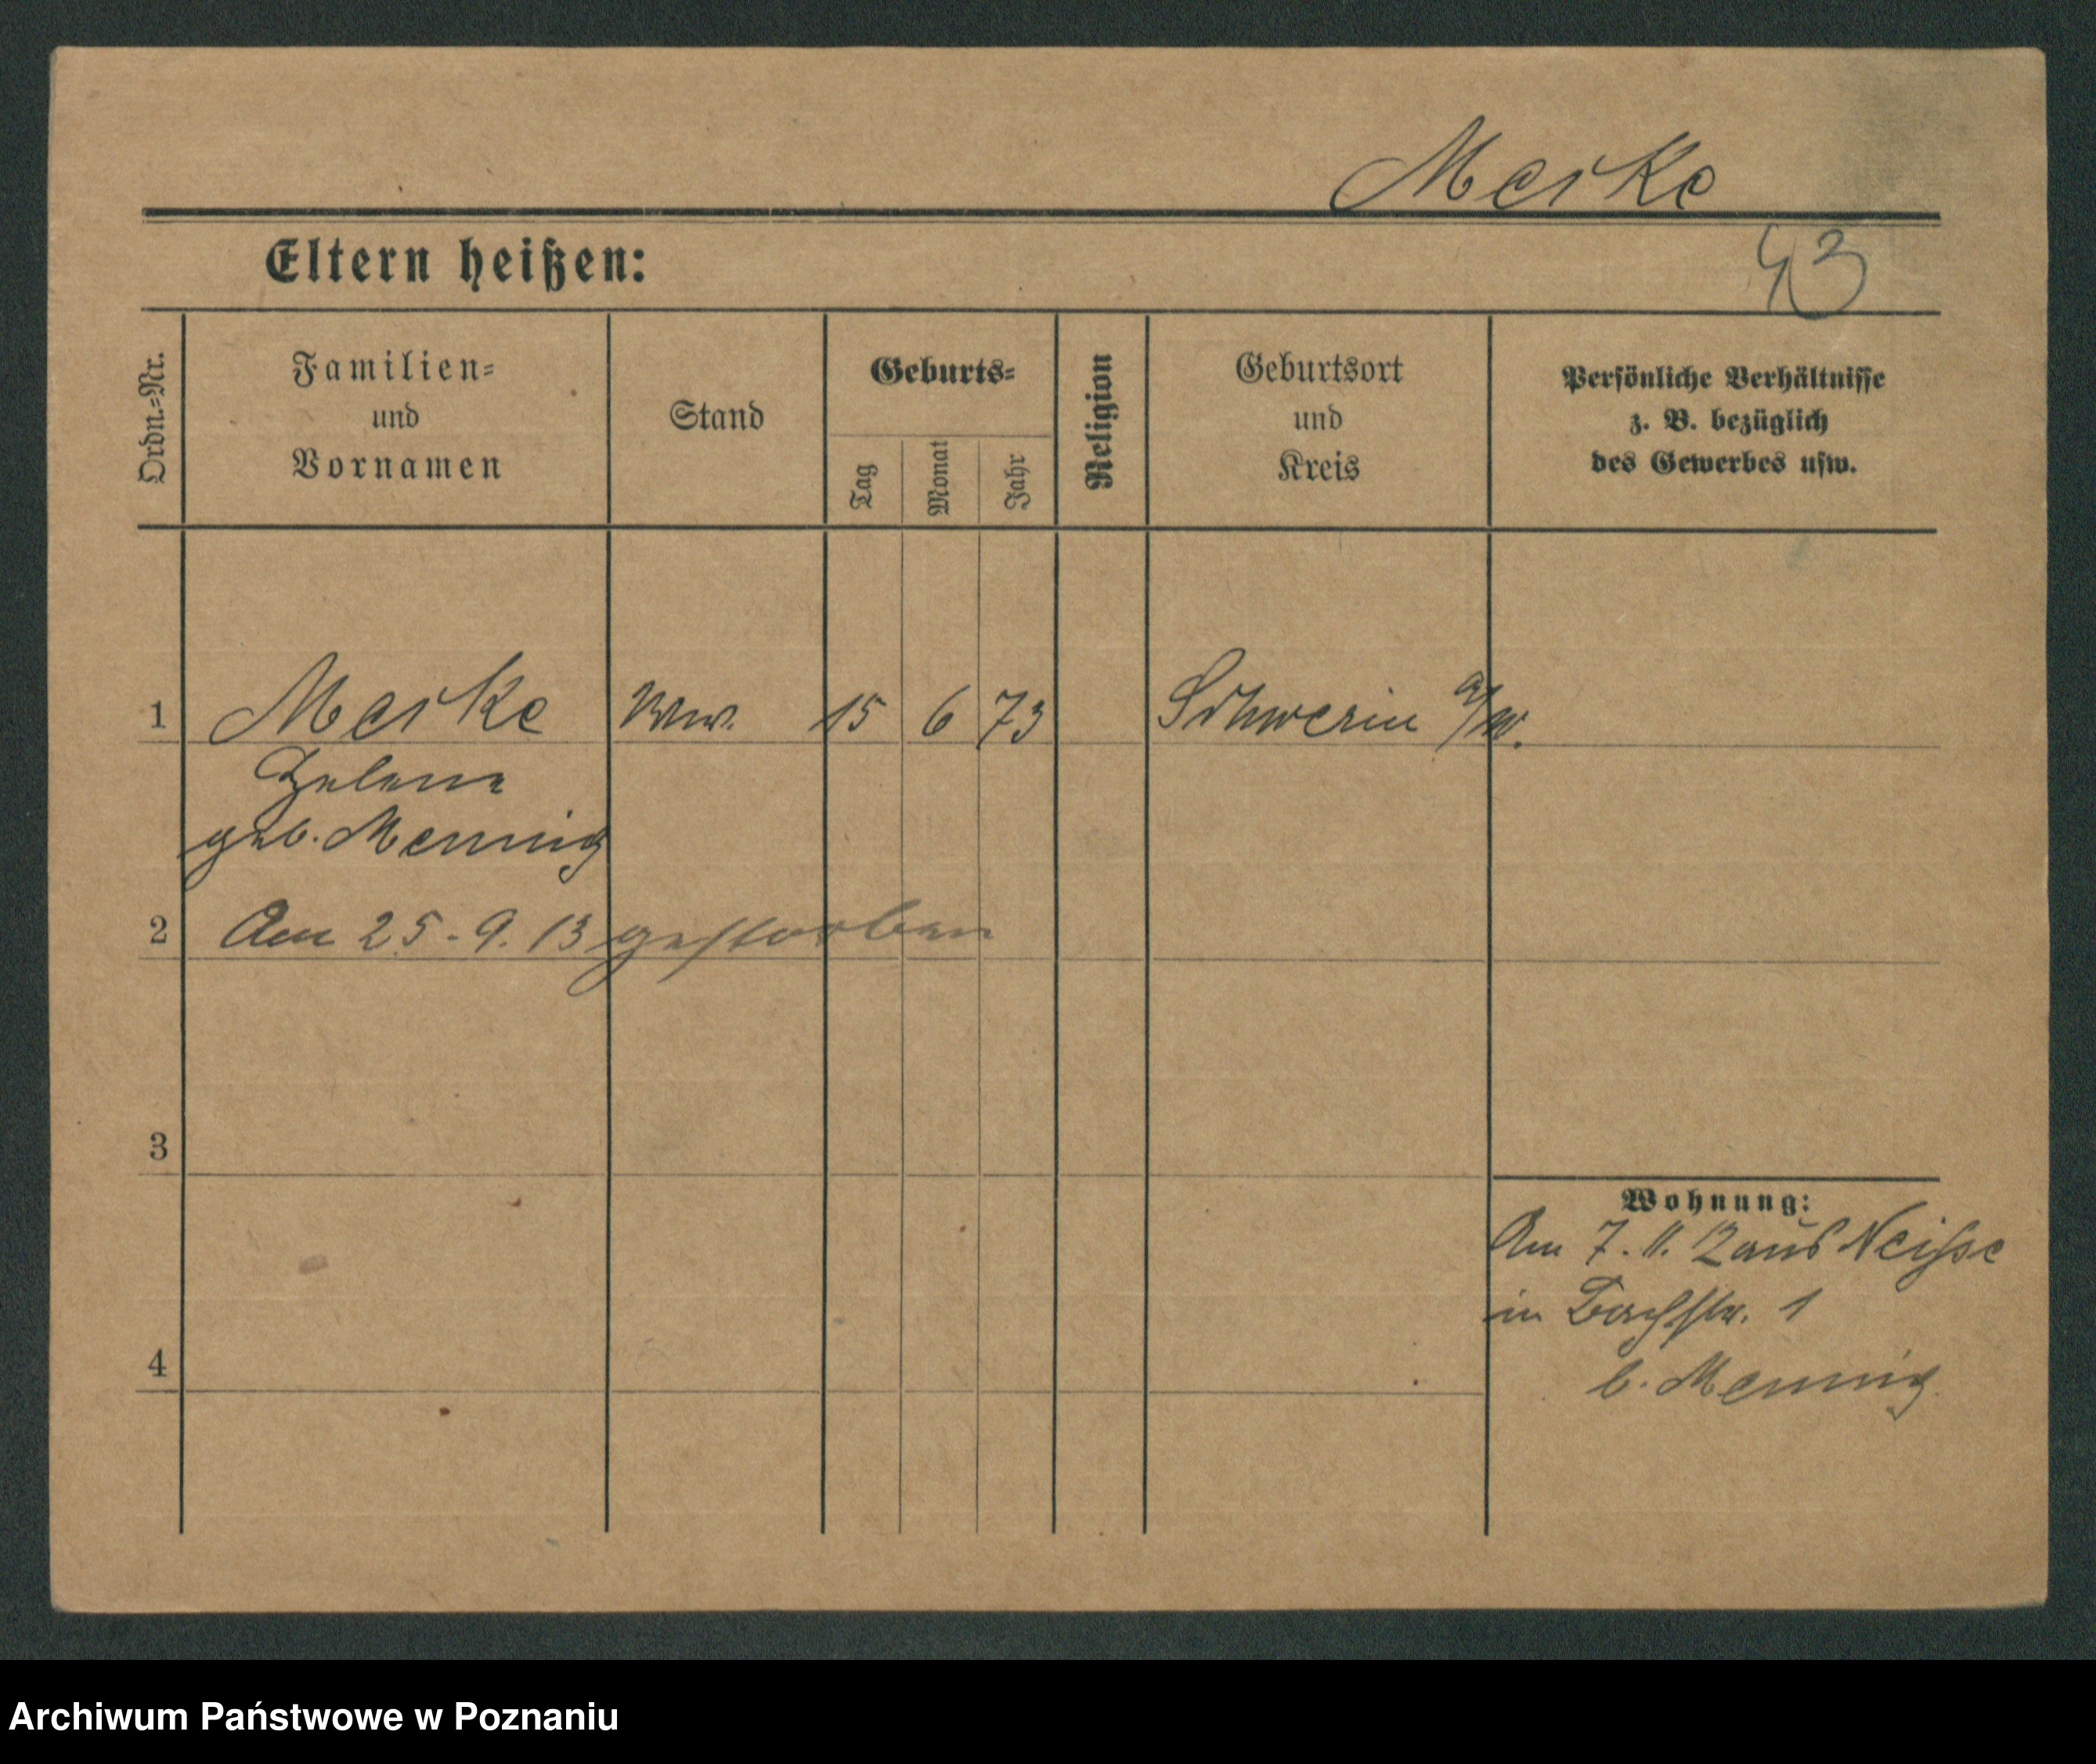 Merke
43
Eltern heißen:
Ordn.=Nr.
Familien=
und
Vornamen
Stand
Geburts=
Tag
Monat
Jahr
Religion
Geburtsort
und
Kreis
Persönliche Verhältnisse
z. B. bezüglich
des Gewerbes usw.
1 Merke Ww. 15 6 73 Schwerin a/W.
Helene
geb. Mennig
2 Am 25.9.13 gestorben
3
Wohnung:
Am 7.11.12 aus Neisse
in Bachstr. 1
4
b. Mennig
Archiwum Państwowe w Poznaniu